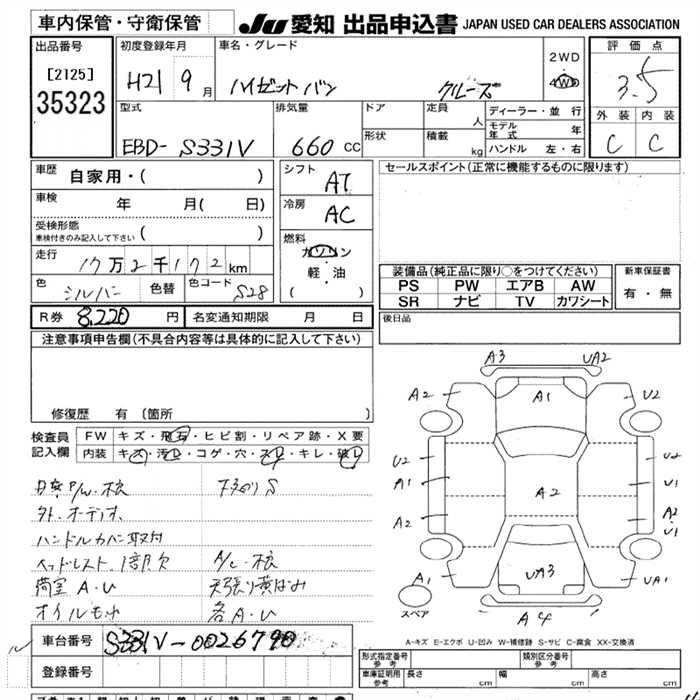 車内保管・守衛保管
JU 愛知 出品申込書 JAPAN USED CAR DEALERS ASSOCIATION
出品番号
[2125]
35323
初度登録年月
H21 9 月
車名・グレード
ハイゼットバン クルーズ
2WD
4WD
評価点
3.5
外装 内装
C C
型式
EBD- S331V
排気量
660 CC
ドア
形状
定員
人
積載
kg
ディーラー・並行
モデル年式 年
ハンドル 左・右
車歴
自家用・( )
車検
年 月( 日)
受検形態
車検付きのみ記入して下さい ( )
走行
17万2千172km
色
シルバー
色替
色コード
S28
シフト
AT
冷房
AC
燃料
ガソリン
軽・油
( )
セールスポイント(正常に機能するものに限ります)
装備品(純正品に限り○をつけてください)
PS PW エアB AW
SR ナビ TV カワシート
新車保証書
有・無
R券 8,220 円
名変通知期限 月 日
後日品
注意事項申告欄(不具合内容等は具体的に記入して下さい)
修復歴 有 [箇所 ]
検査員記入欄
FW キズ・飛石・ヒビ割・リペア跡・X要
内装 キズ・汚レ・コゲ・穴・スレ・キレ・破レ
外.オーディオ
ハンドルカバー取付
ヘッドレスト 1部欠
荷室 A.U
天張り黄ばみ
各A.U
車台番号
S331V-0026790
登録番号
A3 UA2
A2 A1 U2
U2 U2
A1 U1
A2 A2 A2
U1
A1 UA3 UA1
スペア
A4
A-キズ E-エクボ U-凹み W-補修跡 S-サビ C-腐食 XX-交換済
形式指定番号
参考
類別区分番号
参考
車庫証明用
参考
長さ cm
幅 cm
高さ cm